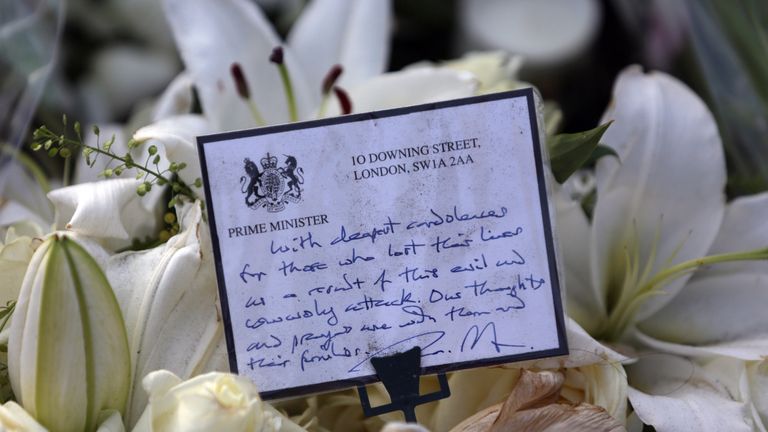 10 DOWNING STREET,
LONDON, SW1A 2AA
PRIME MINISTER
With deepest condolences
for those who lost their lives
as a result of this evil and
cowardly attack. Our thoughts
and prayers are with them and
their families.